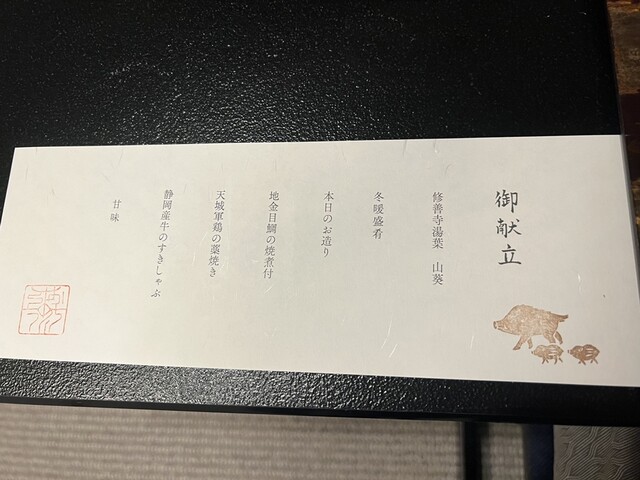 御献立
修善寺湯葉　山葵
冬暖盛肴
本日のお造り
地金目鯛の焼煮付
天城軍鶏の藁焼き
静岡産牛のすきしゃぶ
甘味